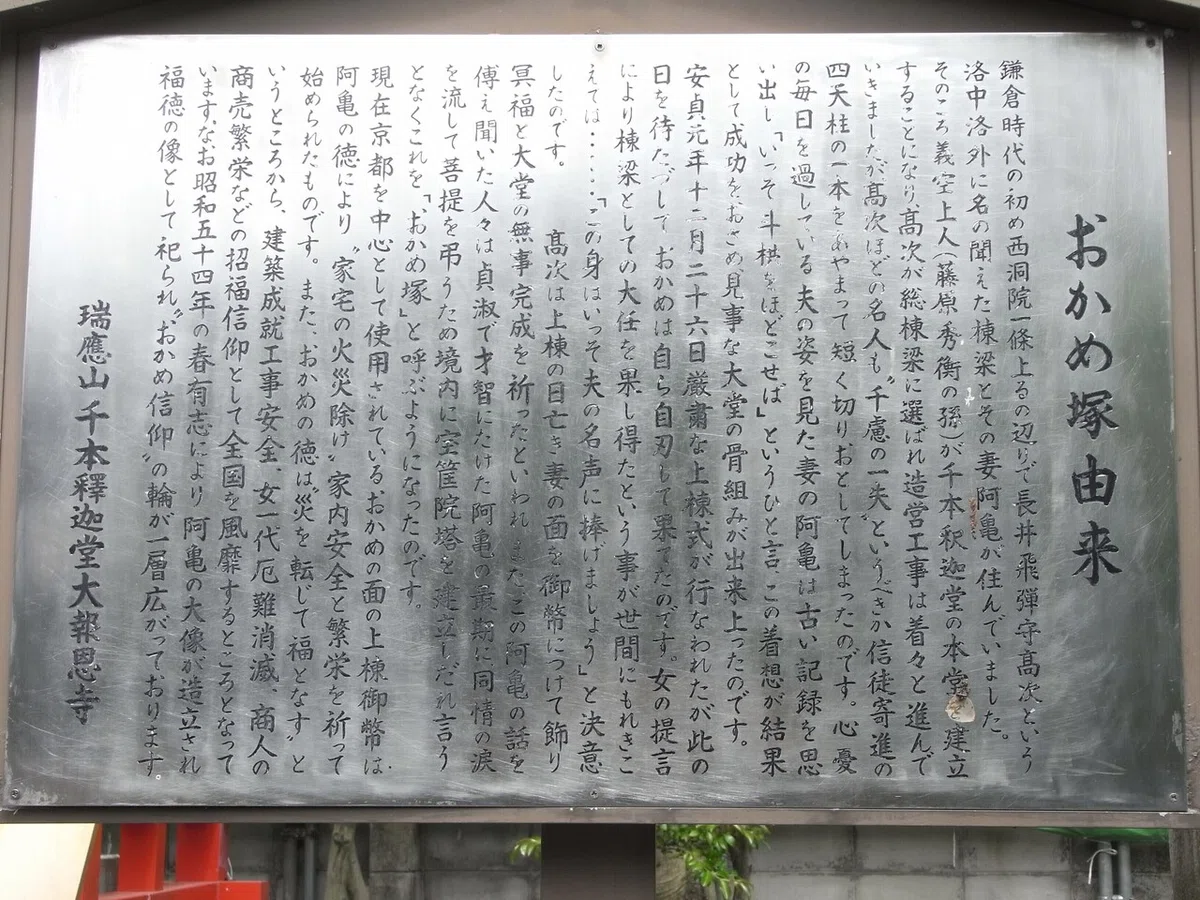 おかめ塚由来
鎌倉時代の初め西洞院一條上るの辺りで長井飛弾守高次という
洛中洛外に名の聞えた棟梁とその妻阿亀が住んでいました。
そのころ義空上人(藤原秀衡の孫)が千本釈迦堂の本堂を建立
することになり、高次が総棟梁に選ばれ造営工事は着々と進んで
いきましたが高次ほどの名人も〝千慮の一失〟というべきか信徒寄進の
四天柱の一本をあやまって短く切りおとしてしまったのです。心憂
の毎日を過している夫の姿を見た妻の阿亀は古い記録を思
い出し「いっそ斗栱をほどこせば」というひと言、この着想が結果
として成功をおさめ、見事な大堂の骨組みが出来上ったのです。
安貞元年十二月二十六日厳粛な上棟式が行なわれたが此の
日を待たづして、おかめは自ら自刃して果てたのです。女の提言
により棟梁としての大任を果し得たという事が世間にもれきこ
えては・・・・・「この身はいっそ夫の名声に捧げましよう」と決意
したのです。　高次は上棟の日亡き妻の面を御幣につけて飾り
冥福と大堂の無事完成を祈ったといわれ、またこの阿亀の話を
傳え聞いた人々は貞淑で才智にたけた阿亀の最期に同情の涙
を流して菩提を弔うため境内に宝筐院塔を建立しだれ言う
となくこれを「おかめ塚」と呼ぶようになったのです。
現在京都を中心として使用されているおかめの面の上棟御幣は
阿亀の徳により〝家宅の火災除け〟家内安全と繁栄を祈って
始められたものです。また、おかめの徳は〝災を転じて福となす〟と
いうところから、建築成就工事安全、女一代厄難消滅、商人の
商売繁栄などの招福信仰として全国を風靡するところとなって
います。なお昭和五十四年の春有志により阿亀の大像が造立され
福徳の像として祀られ、〝おかめ信仰〟の輪が一層広がっております。
瑞應山千本釋迦堂大報恩寺